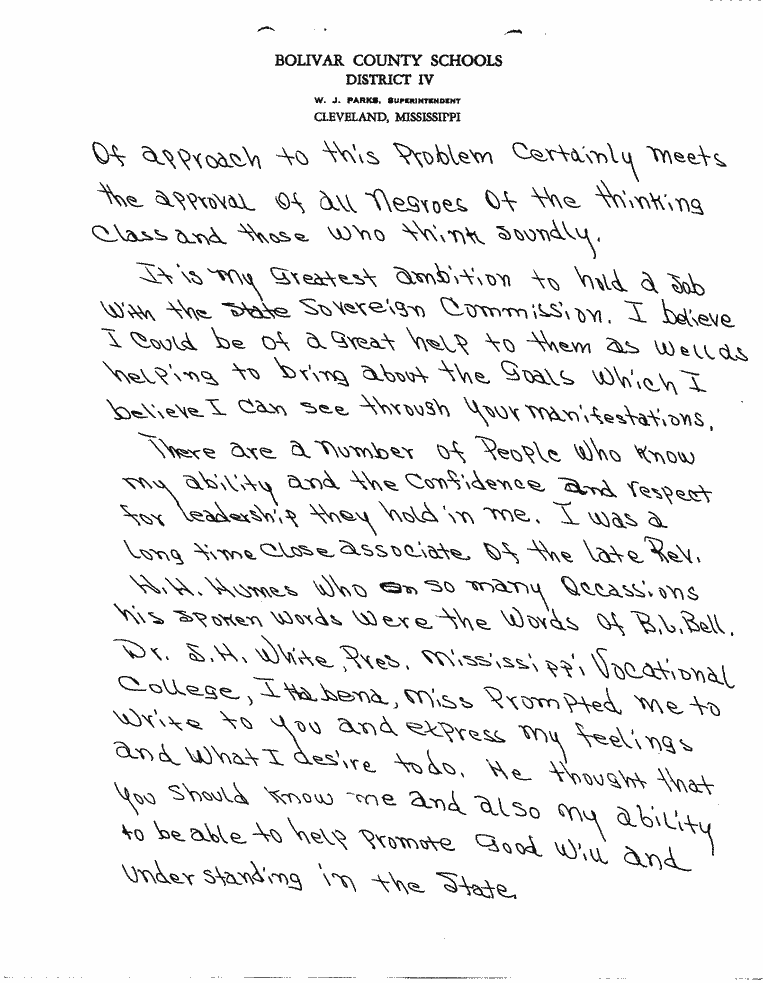 BOLIVAR COUNTY SCHOOLS
DISTRICT IV
W. J. PARKS, SUPERINTENDENT
CLEVELAND, MISSISSIPPI
Of approach to this Problem Certainly meets
the approval of all Negroes Of the thinking
Class and those who think soundly.
It is my Greatest ambition to hold a Job
With the State Sovereign Commission. I believe
I Could be of a great help to them as well as
helping to bring about the Goals Which I
believe I can see through your manifestations.
There are a number of People Who Know
my ability and the Confidence and respect
for leadership they hold in me. I was a
long time Close associate Of the late Rev.
H.H. Humes Who on so many Occassions
his spoken words were the Words Of B.L. Bell.
Dr. J.H. White, Pres. Mississippi Vocational
College, Itta bena, Miss Prompted me to
Write to you and express my feelings
and What I desire to do. He thought that
you should know me and also my ability
to be able to help Promote Good Will and
Under standing in the State.